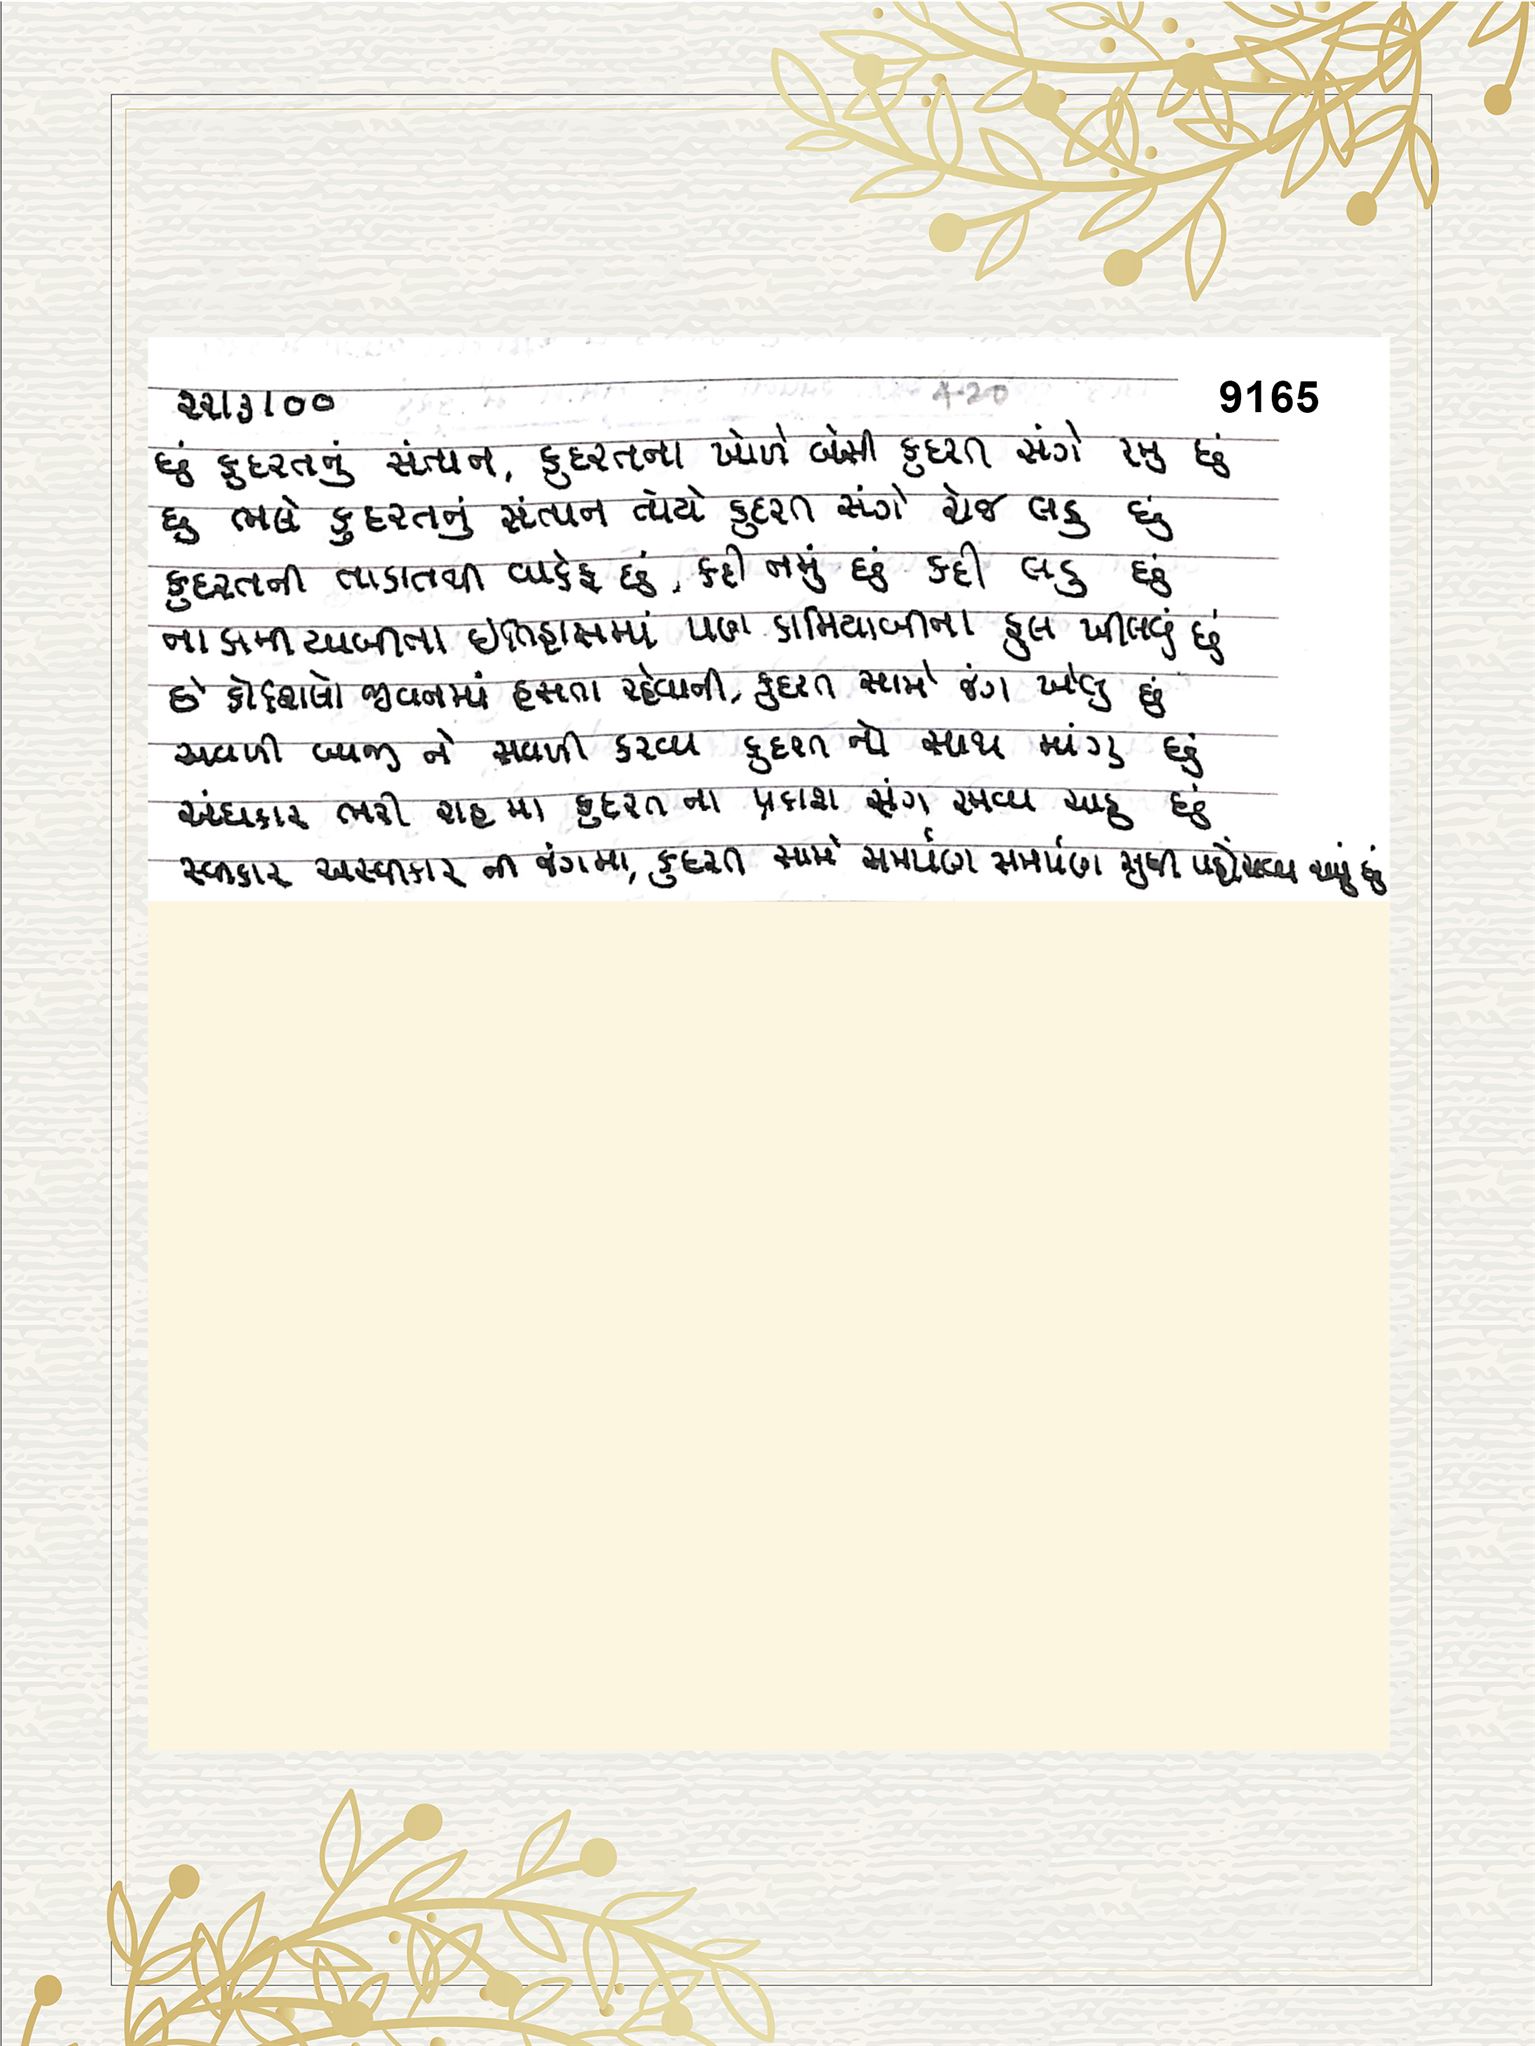 ૨૨।૩।૦૦
9165
છું કુદરતનું સંતાન, કુદરતના ખોળે બેસી કુદરત સંગે રમુ છું
છુ ભલે કુદરતનું સંતાન તોયે કુદરત સંગે રોજ લડુ છું
કુદરતની તાકાતથી વાકેફ છું, કદી નમું છું કદી લડુ છું
નાકામીયાબીના ઇતિહાસમાં પણ કામિયાબીના ફુલ ખીલવું છું
છે કોશિશો જીવનમાં હસતા રહેવાની, કુદરત સામે જંગ ખેલુ છું
અવળી બાજી ને સવળી કરવા કુદરત નો સાથ માંગુ છું
અંધકાર ભરી રાહ મા કુદરત ના પ્રકાશ સંગ રમવા ચાહુ છું
સ્વીકાર અસ્વીકાર ની જંગમા, કુદરત સામે સમર્પણ સમર્પણ સુધી પહોંચવા છું